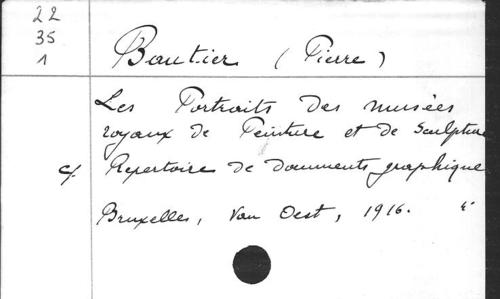 22
35
1
Bautier (Pierre)
Les Portraits des musées
royaux de Peinture et de Sculpture
Repertoire de documents graphique
Bruxelles, Van Oest, 1916.